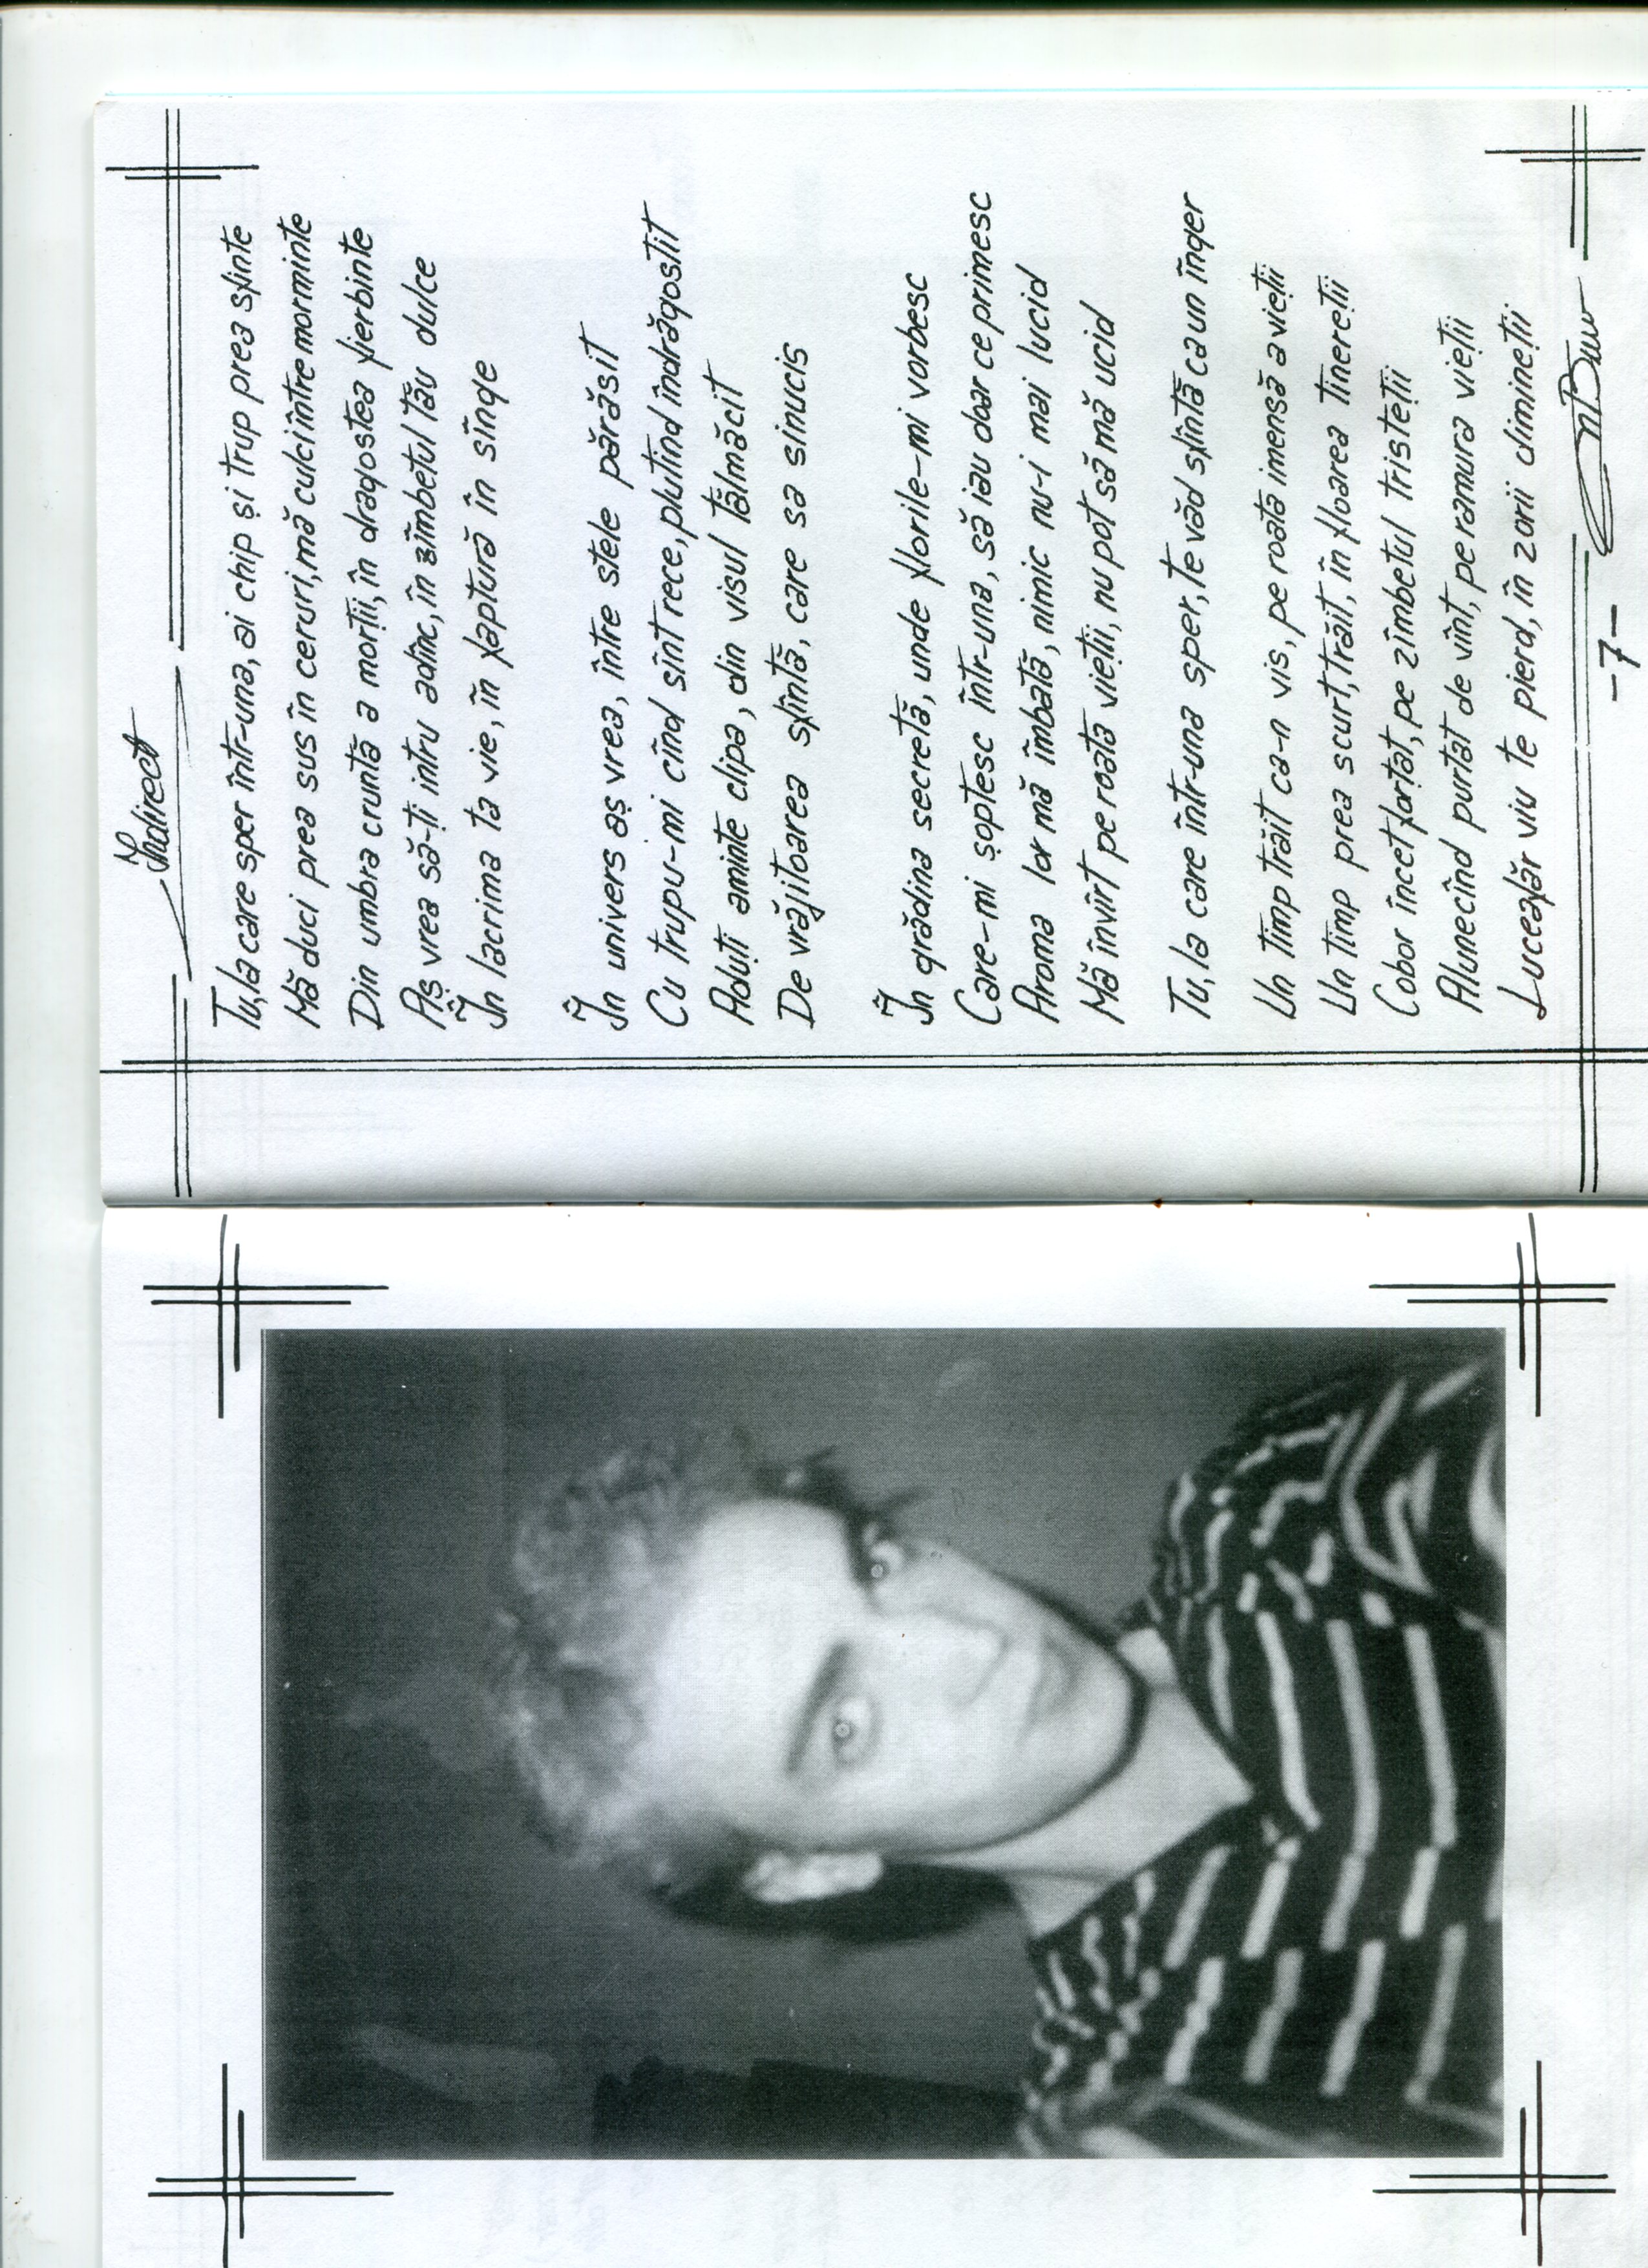 Indirect
Tu, la care sper într-una, ai chip și trup prea sfinte
Mă duci prea sus în ceruri, mă culci între morminte
Din umbra cruntă a morții, în dragostea fierbinte
Aș vrea să-ți intru adînc, în zîmbetul tău dulce
În lacrima ta vie, în faptură în sînge
În univers aș vrea, între stele părăsit
Cu trupu-mi cînd sînt rece, plutind îndrăgostit
Aduți aminte clipa, din visul tălmăcit
De vrăjitoarea sfîntă, care sa sinucis
În grădina secretă, unde florile-mi vorbesc
Care-mi șoptesc într-una, să iau doar ce primesc
Aroma lor mă îmbată, nimic nu-i mai lucid
Mă învîrt pe roata vieții, nu pot să mă ucid
Tu, la care într-una sper, te văd sfîntă ca un înger
Un timp trăit ca-n vis, pe roata imensă a vieții
Un timp prea scurt, trăit, în floarea tinereții
Cobor încet forțat, pe zîmbetul tristeții
Alunecînd purtat de vînt, pe ramura vieții
Luceafăr viu te pierd, în zorii dimineții
-7-